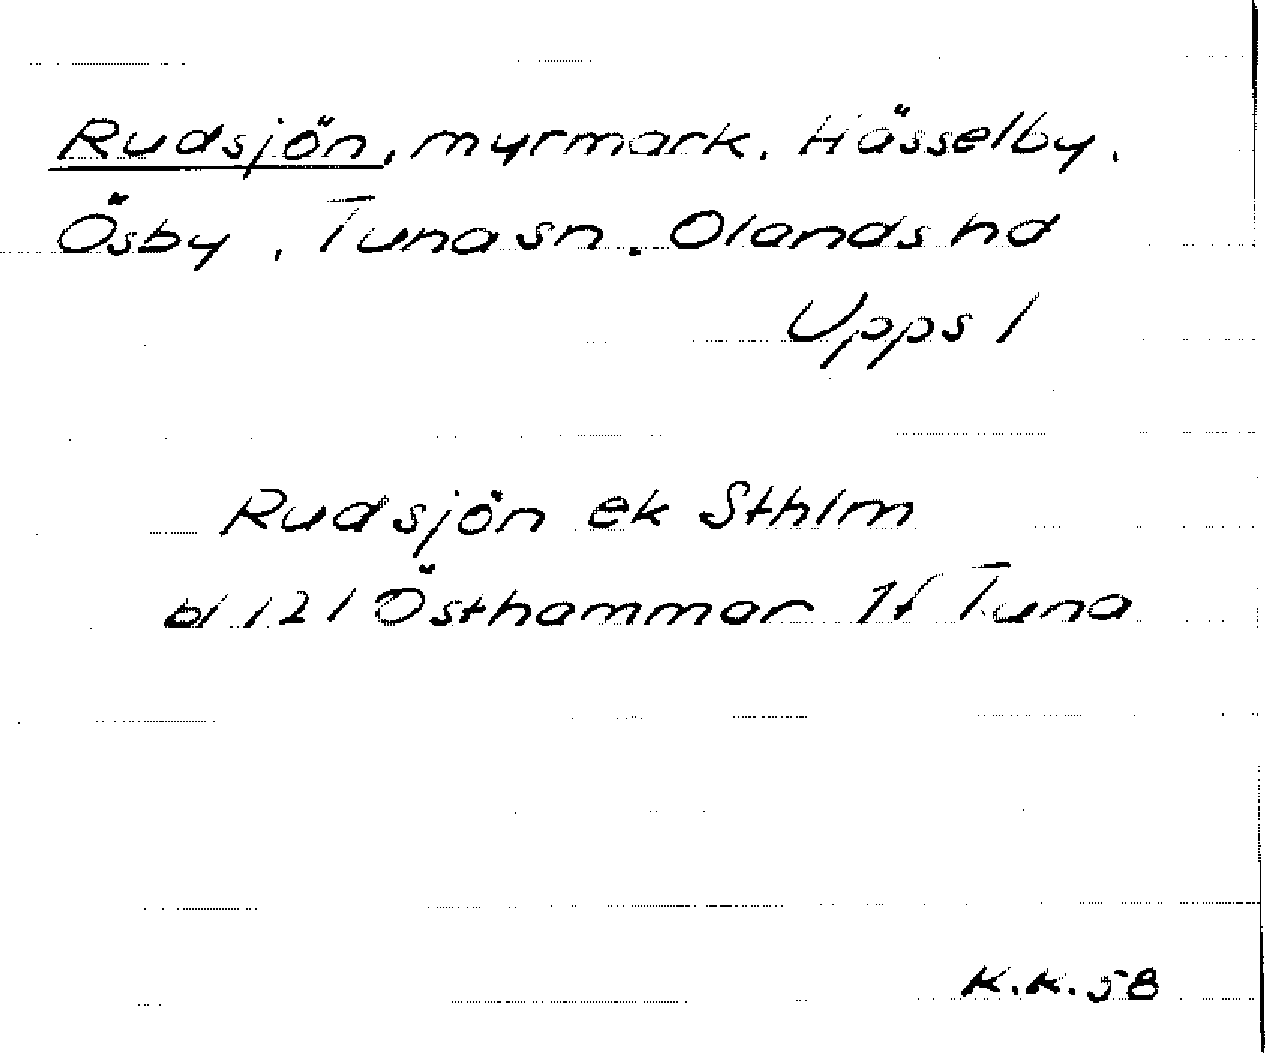 Rudsjön, myrmark. Hässelby.
Ösby, Tuna sn. Olands hd
Upps l
Rudsjön ek Sthlm
bl 121 Östhammar 1f Tuna
K.K. 58